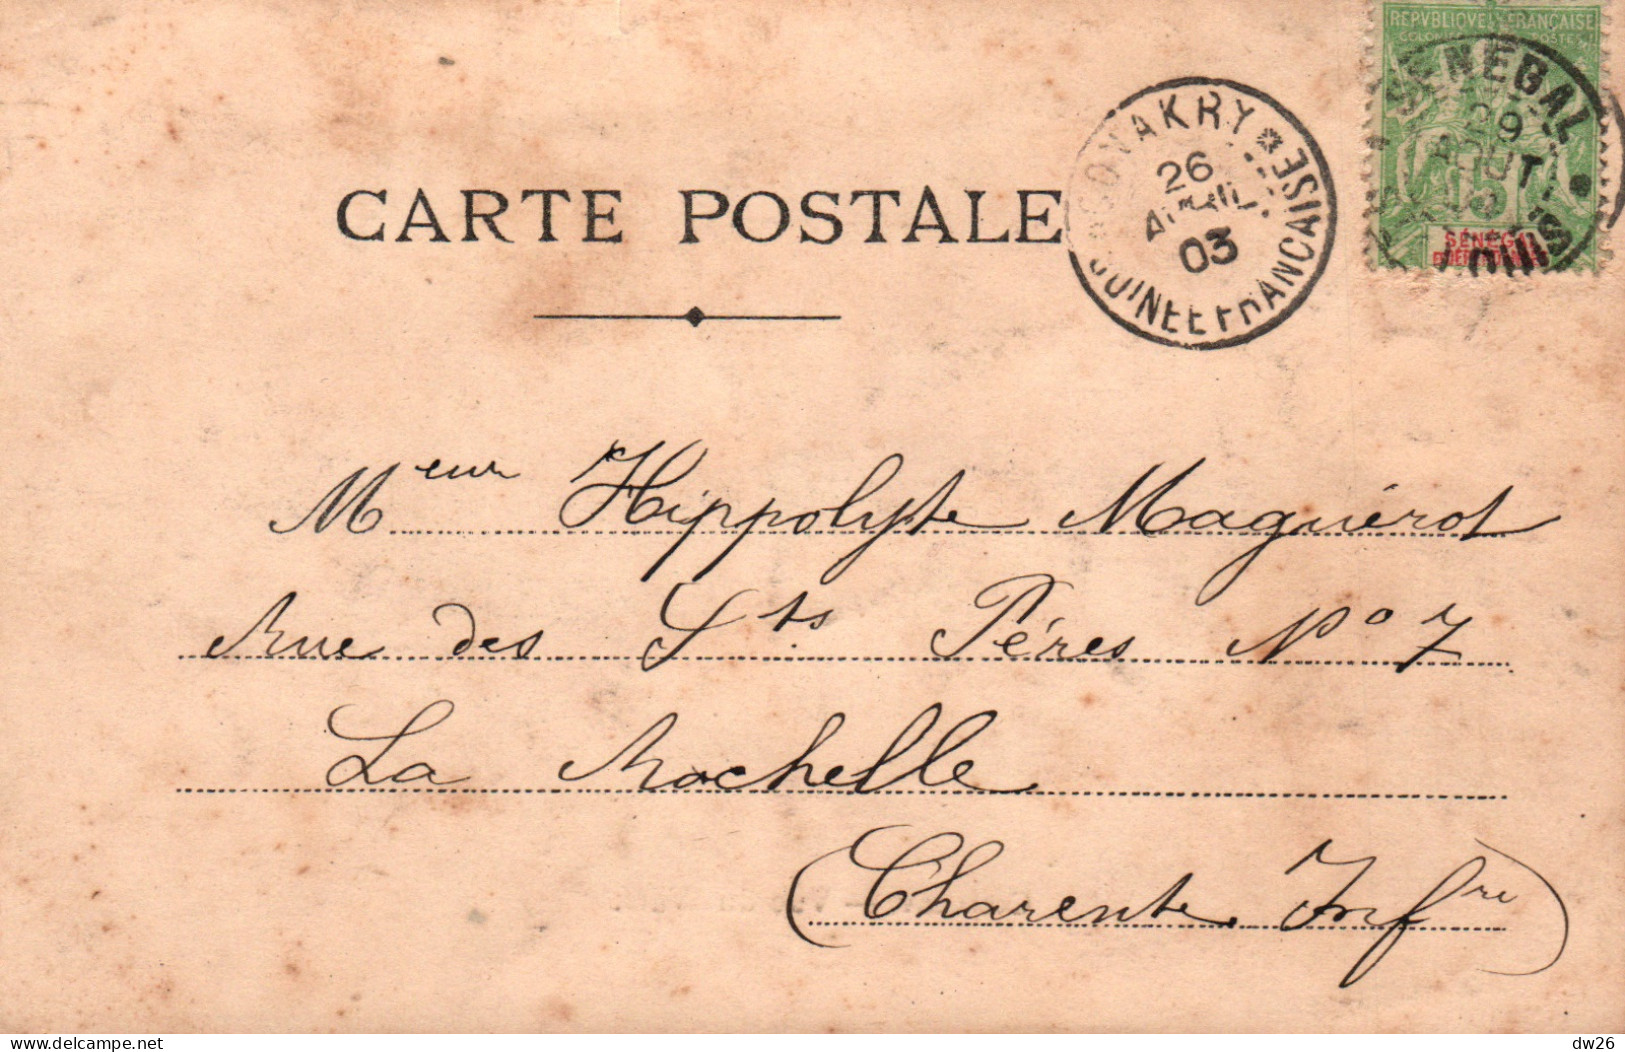 REPVBLIQVE FRANÇAISE
COLONIES POSTES
SENEGAL
29
AOUT
SÉNÉGAL
CONAKRY
26
AVRIL
03
GUINEE FRANCAISE
CARTE POSTALE
Meur Hippolyte Maguérot
Rue des Sts Péres No 7
La Rochelle
(Charente Infre)
delcampe.net
dw26